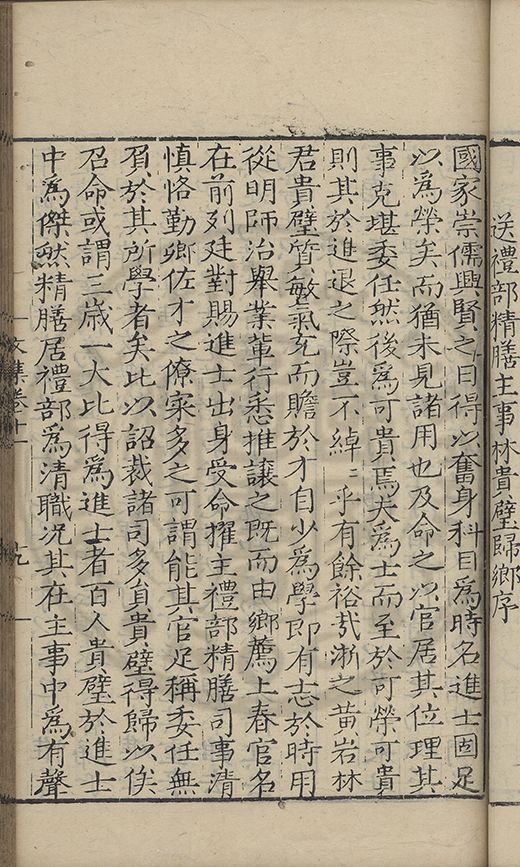 送禮部精膳主事林貴璧歸鄉序
國家崇儒興賢之日得以奮身科目爲時名進士固足
以爲榮矣而猶未見諸用也及命之以官居其位理其
事克堪委任然後爲可貴焉夫爲士而至於可榮可貴
則其於進退之際豈不綽〻乎有餘裕㢤浙之黃岩林
君貴璧質敏氣充而贍於才自少爲學即有志於時用
從明師治舉業軰行悉推讓之既而由鄉薦上春官名
在前列廷對賜進士出身受命擢主禮部精膳司事清
慎恪勤卿佐才之僚寀多之可謂能其官足稱委任無
負於其所學者矣比以詔裁諸司多負貴璧得歸以俟
召命或謂三歲一大比得爲進士者百人貴璧於進士
中爲傑然精膳居禮部爲清職况其在主事中爲有聲
文集卷十一
九